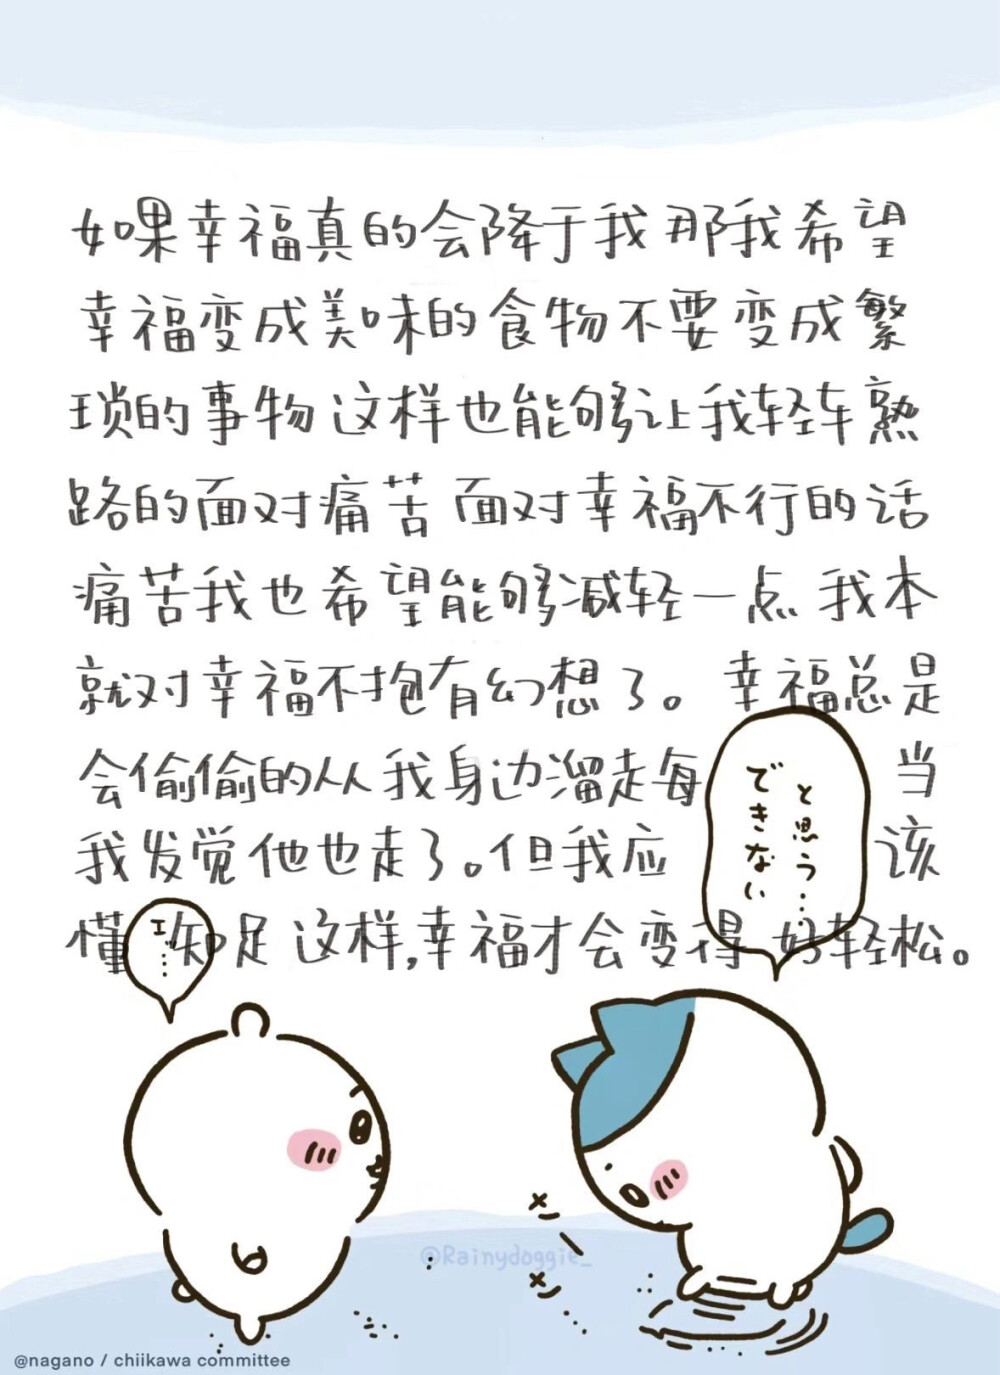 如果幸福真的会降于我那我希望
幸福变成美味的食物不要变成繁
琐的事物这样也能够让我轻车熟
路的面对痛苦面对幸福不行的话
痛苦我也希望能够减轻一点我本
就对幸福不抱有幻想了。幸福总是
会偷偷的从我身边溜走每 当
我发觉他也走了。但我应 该
懂 知足 这样,幸福才会变得 好轻松。
と思う…
できない
エ…
@Rainydoggie_
@nagano / chiikawa committee